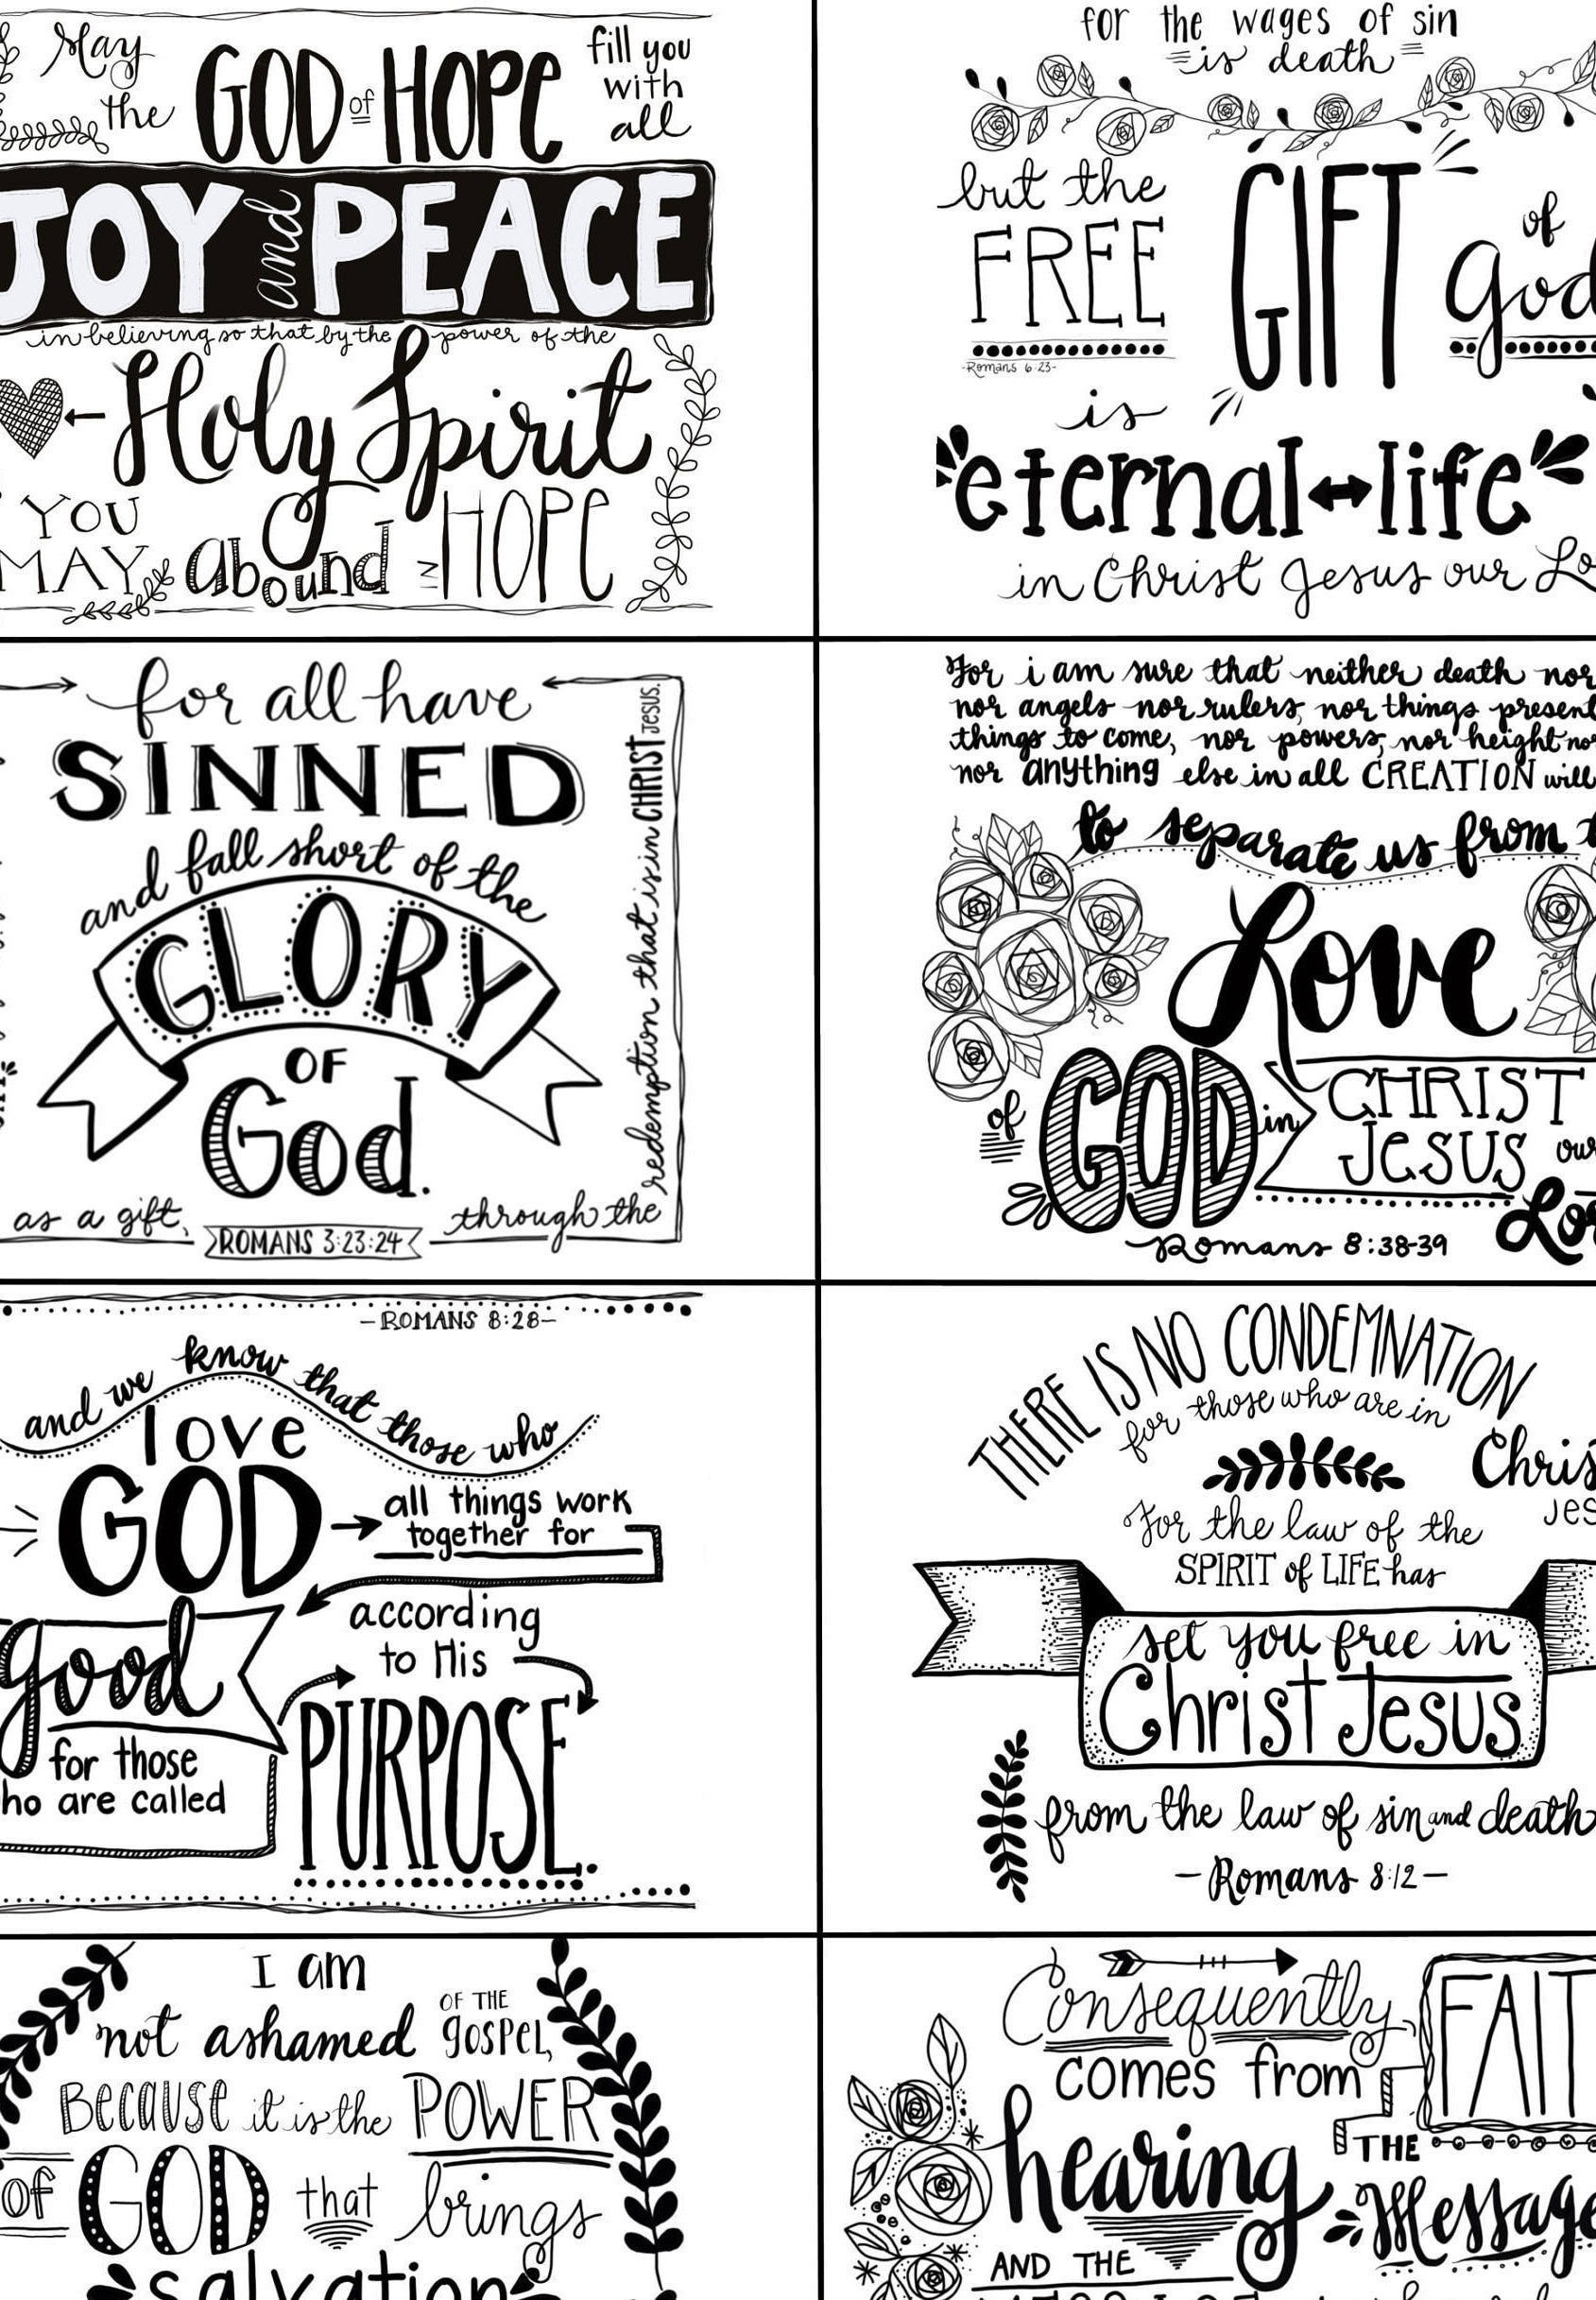 May the GOD of HOPE fill you with all
JOY and PEACE
in believing so that by the power of the
Holy Spirit
YOU MAY abound IN HOPE
for the wages of sin
is death
but the FREE GIFT of God
-Romans 6:23-
is
eternal life
in Christ Jesus our Lo
for all have
SINNED
and fall short of the
GLORY
OF
God.
as a gift,
through the redemption that is in CHRIST JESUS.
ROMANS 3:23-24
For i am sure that neither death nor
nor angels nor rulers, nor things present
things to come, nor powers, nor height nor
nor anything else in all CREATION will
to separate us from t
Love
of GOD in CHRIST JESUS our
Lor
Romans 8:38-39
-ROMANS 8:28-
and we know that those who
love
GOD
all things work
together for
good
for those
ho are called
according
to His
PURPOSE.
THERE IS NO CONDEMNATION
for those who are in
Chris
Jes
For the law of the
SPIRIT of LIFE has
set you free in
Christ Jesus
from the law of sin and death
-Romans 8:12-
I am
not ashamed OF THE gospel,
Because it is the POWER
of GOD that brings
salvation
Consequently,
FAIT
comes from
hearing
THE
Message
AND THE